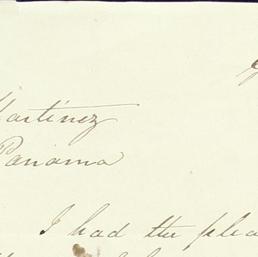 Martinez
Panama
I had the plea